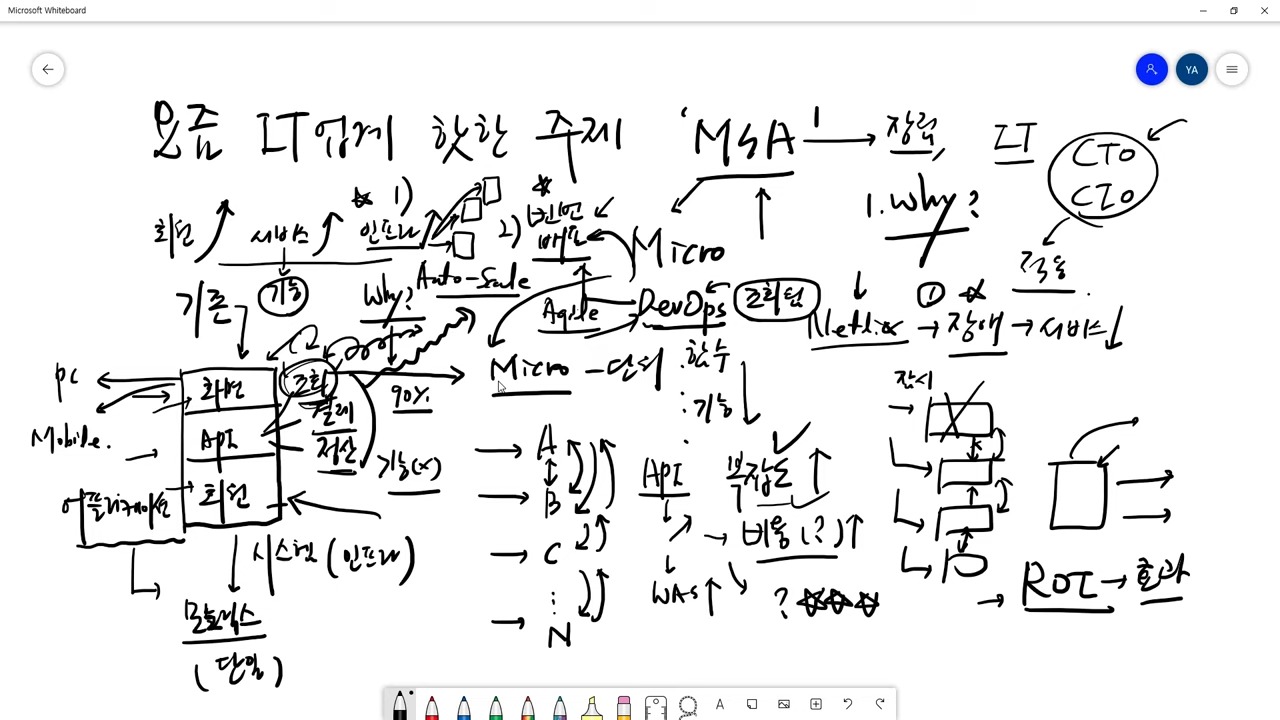 Microsoft Whiteboard
YA
요즘 IT업계 핫한 주제 'MSA' → 장력, IT
CTO
CIO
1. Why?
회원 서비스 1) 인프라
2) 빈번
배포
Micro
기능
Auto-Scale
적용
기존
Why?
Agile
DevOps
조회턴
Netflix → 장애 → 서비스
① 
PC
Mobile.
화면
API
회원
조회
결제
저산
90%
기능(x)
어플리케이션
시스템 (인프라)
모놀릭스
(단일)
Micro - 단위
: 함수
: 기능
A
B
C
N
API
WAS
복잡도
→ 비용(?)
?
잠시
→ ROI → 효과
A